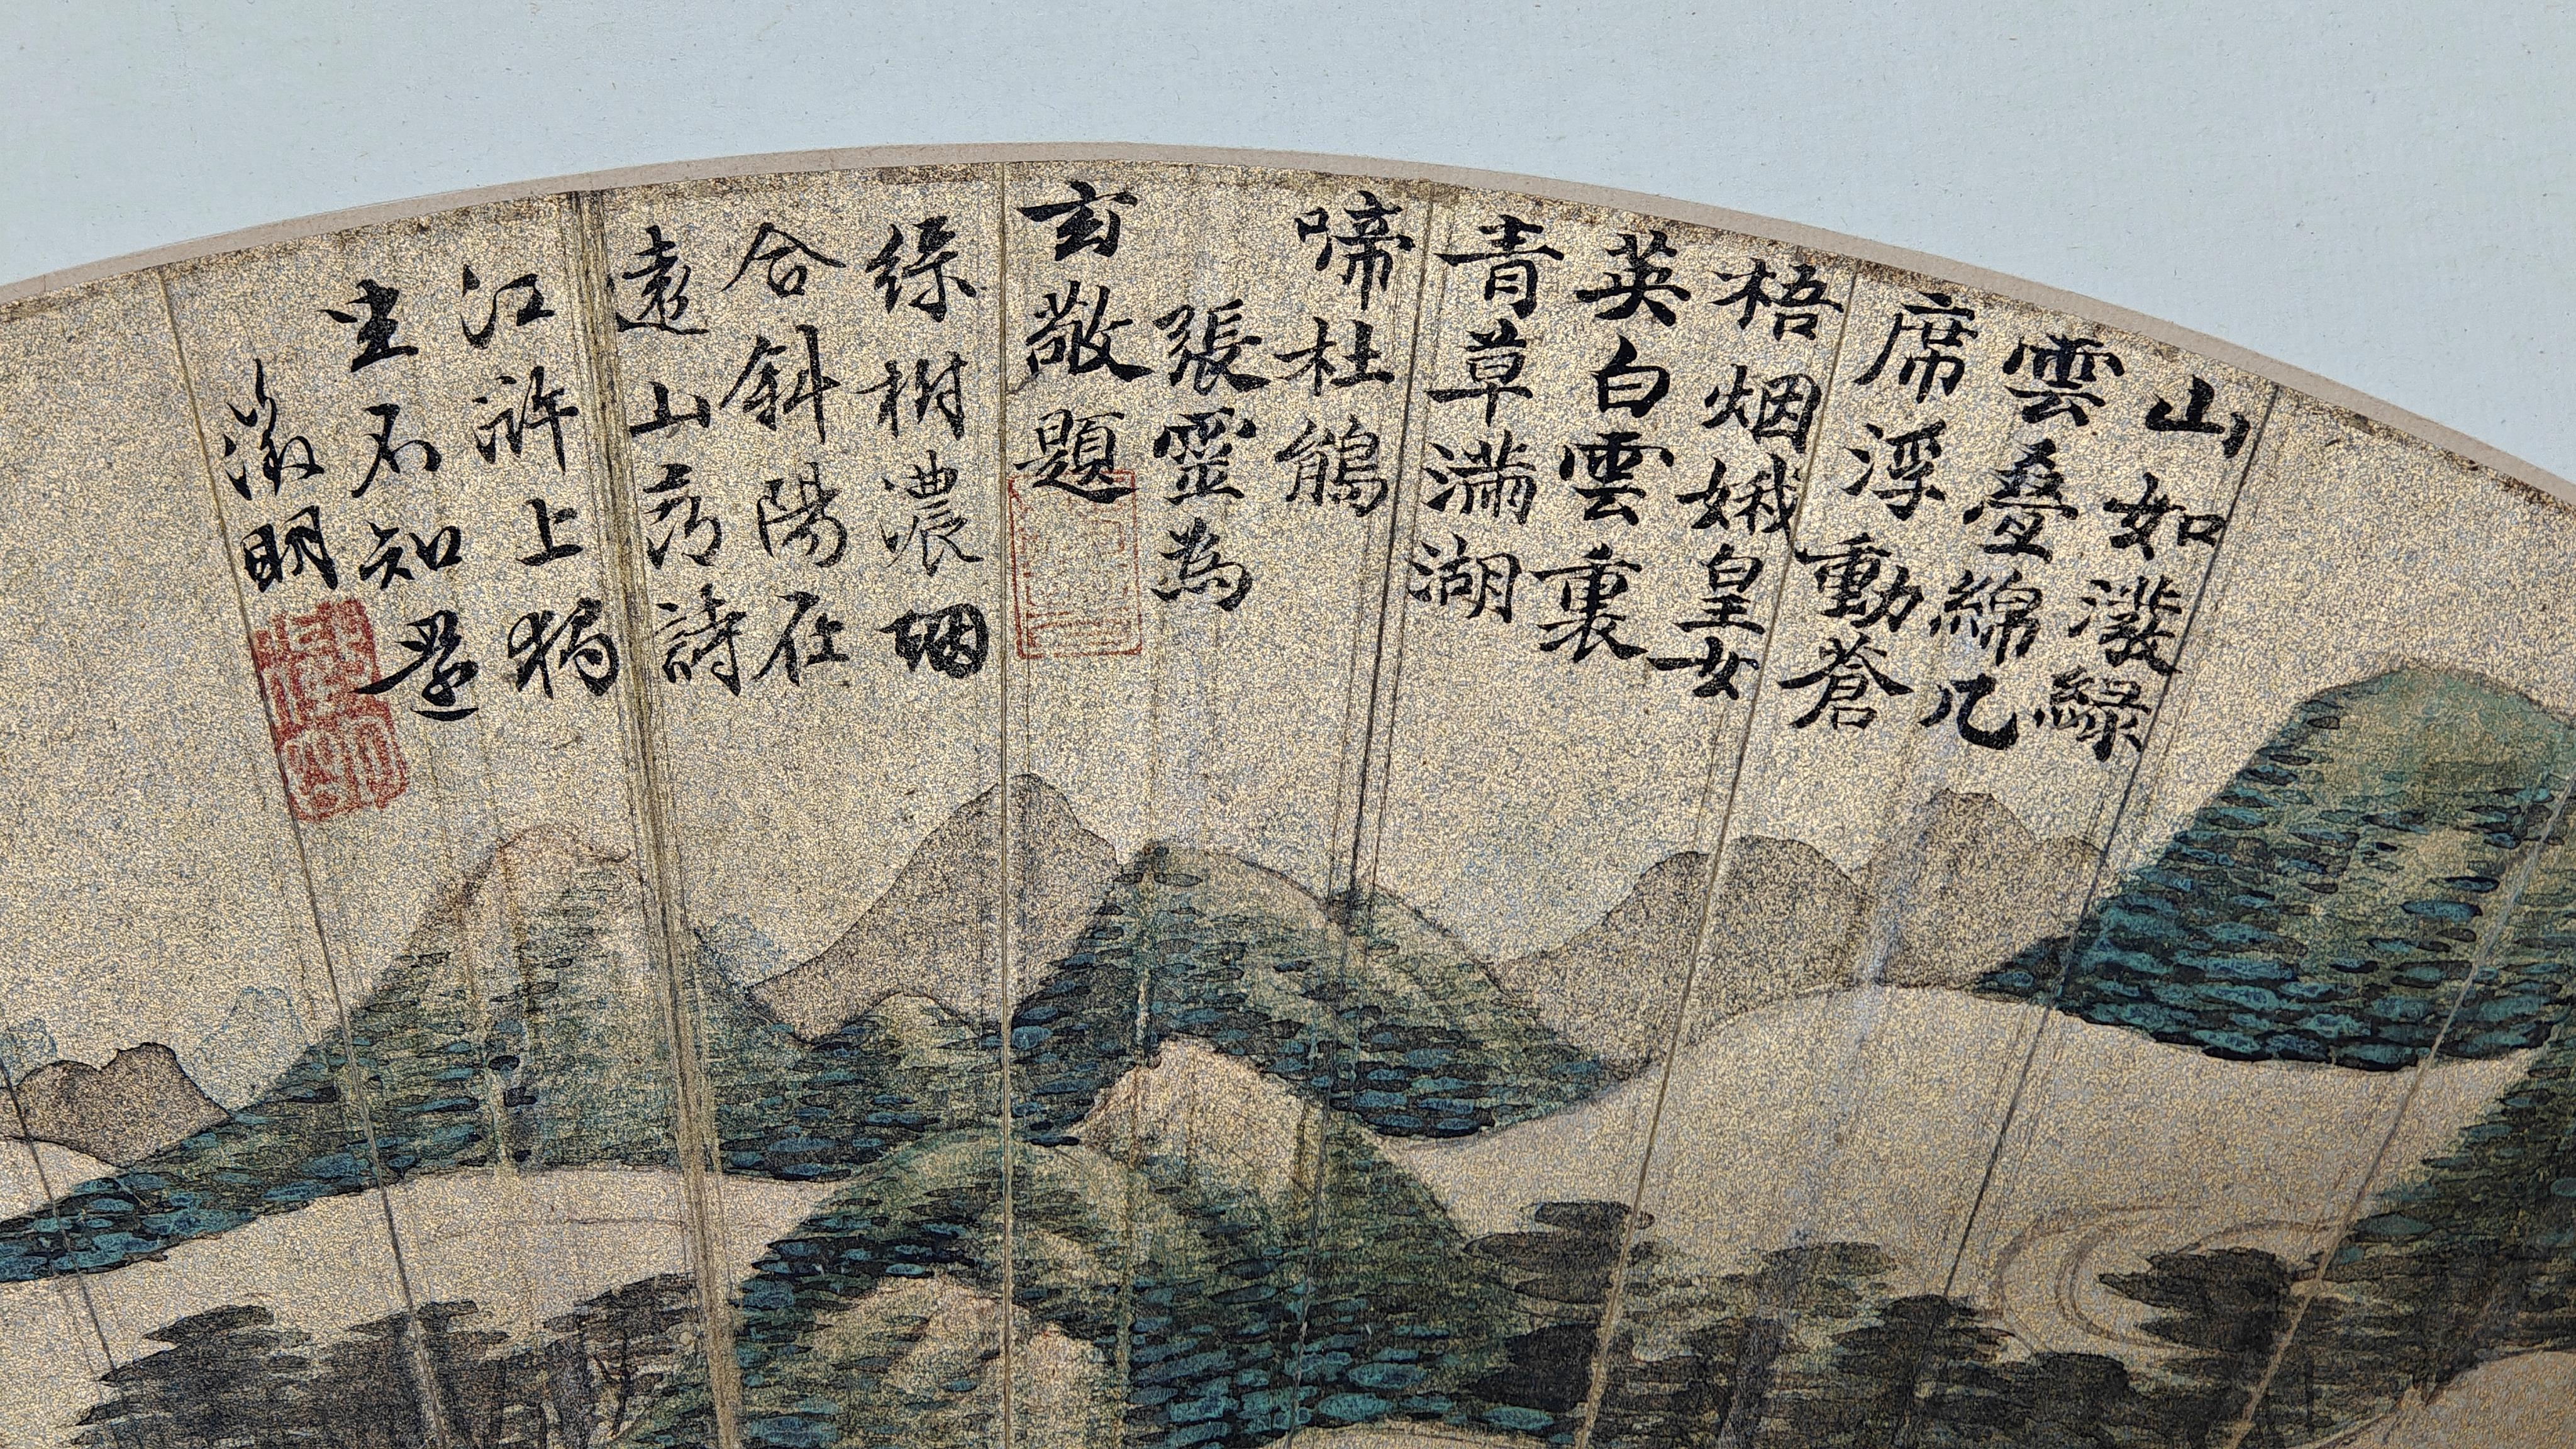 山如潑綠
雲疊綿几
席浮動蒼
梧烟娥皇女
英白雲裏
青草滿湖
啼杜鵑
張靈為
玄敬題
綠樹濃烟
合斜陽在
遠山
詩
江滸上獨
坐石知還
徵明